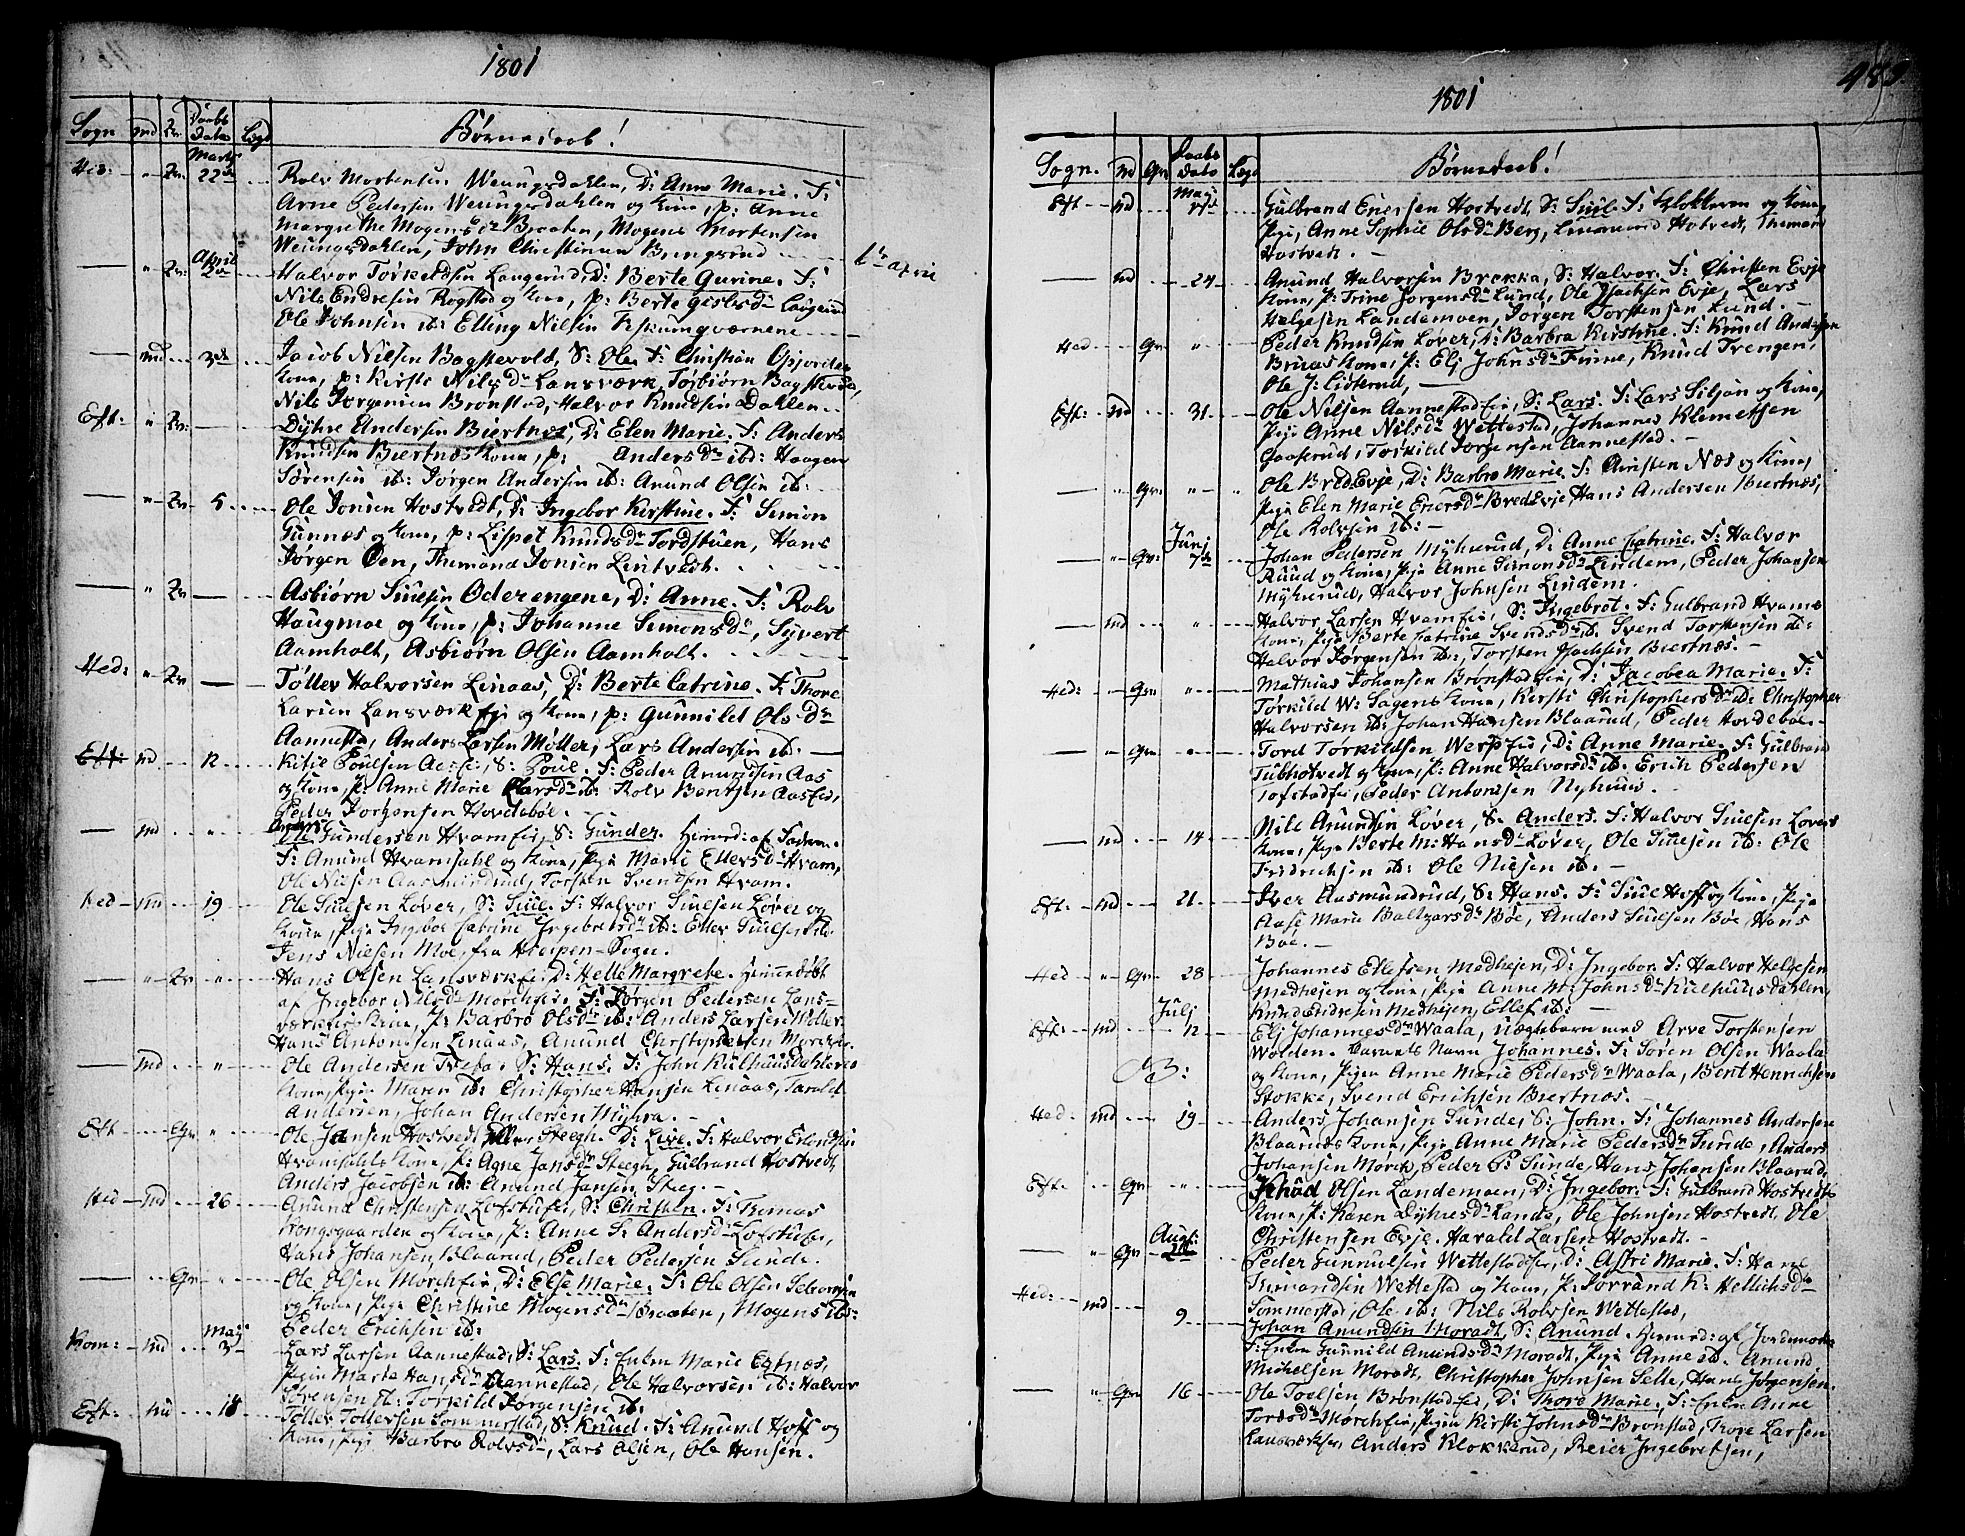 1801
Sogn md Qv Daabs Dato Læg Børnedaab!
Hed: " Qv: Marts 22de Rolv Mortensen Weungsdahlen, D: Anne Marie. F:
Arne Pedersen Weungsdahlen og Kone, p: Anne
Margrethe Mogensdr Braaten, Mogens Mortensen
Weungsdahlen, John Christensen Bungsrud
— " Qv: April 2den Halvor Torkeldsen Langerud, D: Berte Gurine. F: 1te april
Nils Endresen Rogstad og Kone, p: Berte Gislesdr Langerud
Ole Johnsen ib: Elling Nilsen Fiskumgværnene
— md 3de Jacob Nilsen Bagstevold, S: Ole. F: Christian
Kone, p: Kirsti Nilsdr Lansværk, Torbiørn Bagstevold,
Nils Jørgensen Brønstad, Halvor Knudsen Dahlen
Eft: " Qv: — Dyhre Andersen Biertnæs, D: Elen Marie. F: Anders
Knudsen Biertnæs Kone, p: Andersdr ibd: Haagen
Sørensen ib: Jørgen Andersen ib: Anund Olsen ib:
— " Qv 5 Ole Jonsen Hostvedt, D: Ingebor Kirstine. F: Simon
Gunnæs og Kone, p: Lispet Knudsdr Tordstuen, Hans
Jørgen Øen, Themand Jonsen Lintvedt.
— " Qv — Asbiørn Siulsen Oderengene, D: Anne. F: Rolv
Haugmoe og Kone, p: Johanne Simonsdr, Syvert
Aamholt, Asbiørn Olsen Aamholt.
Hed: " Qv — Tollev Halvorsen Linaas, D: Berte Catrine. F: Thore
Larsen Lansværk ei og Kone, p: Gunnild Olsdr
Aannestad, Anders Larsen Møller, Lars Andersen ib.
Eft: md 12 Kitil Poulsen Aasei, S: Poul. F: Peder Anundsen Aas
og Kone, p: Anne Marie Larsdr ib: Rolv Bentsen Aasei,
Peder Jørgensen Hovdeboe.
— md " Anders
Ole Gundersen Hvamei, S: Gunder. Hiemed: af Faderen.
F: Anund Hvamsahl og Kone, Pige Marie Ellefsdr Hvam,
Ole Nielsen Aasmundrud, Torsten Svendsen Hvam.
Hed md 19 Ole Siulsen Løver, S: Siul. F: Halvor Siulsen Løver og
Kone, Pige Ingebor Catrine Ingebretsdr ib: Ellev Siulsen ib.
Jens Nielsen Moe, fra Hreipen-Sogn.
— " Qv " Hans Olsen Lansværkei D: Helle Margrethe. Hiemedøbt
af Ingebor Nilsdr Morchei. F: Jørgen Pedersen Lans-
værkei Kone, p: Barbro Olsdr ib: Anders Larsen Møller
Hans Antonsen Linaas, Anund Christophersen Morchei.
— md " Ole Andersen S: Hans. F: John Kulhuusdahlens
Kone, Pige Maren ib: Christopher Hansen Linaas, Tarald
Andersen, Johan Andersen Myhra.
Eft Qv " Ole Jansen Hostvedt Steegh. D: Live. F: Halvor Erlandsen
Hvamsahls Kone, p: Agne Jansdr Steegh, Gulbrand Hostvedt,
Anders Jacobsen ib: Anund Jansen Steeg.
Hed md 26 Anund Christensen Lofstuei, S: Christen. F: Thomas
Kongsgaarden og Kone, p: Anne S. Andersdr Lofstuei,
Hans Johansen Blaarud, Peder Pedersen Sunde.
— Qv " Ole Olsen Morchei, D: Else Marie. F: Ole Olsen
og Kone, Pige Christine Mogensdr Braaten, Mogens ib:
Peder Erichsen ib:
Kom: md May 3 Lars Larsen Aannestad, S: Lars. F: Enken Marie Egtnæs,
Pigen Marte Hansdr Aannestad, Ole Halvorsen ib: Halvor
Sørensen ib: Torkild Jørgensen ib:
Eft. md 18 Tollev Tollevsen Sommerstad, S: Knud. F: Anund Hoff og
Kone, Pige Barbro Rolvsdr, Lars Olsen, Ole Hansen.
1801
Sogn. md Qv Daabs Dato Læg Børnedaab!
Eft md May 17de Gulbrand Ersen Hostvedt, S: Siul. F: Klokkeren og Kone,
Pige, Anne Sophie Olsdr Berg, Hostvedt, Themand
Hostvedt.
— md 24 Anund Halvorsen Brekka, S: Halvor. F: Christen Evje
Kone, p: Trine Jørgensdr Lund, Ole Isachsen Evje, Lars
Helgesen Landemoen, Jørgen Torstensen Lund.
Hed Qv " Peder Knudsen Løver, D: Barbra Kirstine. F: Knud Andersen
Bruaas Kone, p: Elj Johnsdr Finne, Knud Trengen,
Ole J: Lidterud,
Eft: md 31 Ole Nilsen Aannestadei, S: Lars. F: Lars Siljan og Kone,
Pige Anne Nilsdr Wettestad, Johannes Klemetsen
Gaaserud, Torkild Jørgensen Aannestad.
— " Qv " Ole BredEvje, D: Barbro Marie. F: Christen Næs og Kone,
Pige Elen Marie Eriersdr BredEvje Hans Andersen Biertnæs,
Ole Rolvsen ib:
— " Qv: Junj 7de Johan Pedersen Myhrerud, D: Anne Catrine. F: Halvor
Ruud og Kone, Pige Anne Simonsdr Lindem, Peder Johansen
Myhrerud, Halvor Johnsen Lindem.
— md " Halvor Larsen Hvamei, S: Ingebrot. F: Gulbrand Hvams
Kone, Pige Berte Catrine Svendsdr ib. Svend Torstensen ib:
Halvor Jørgensen ib:, Torsten Isachsen Biertnæs.
Hed: Qv " Mathias Johansen Brønstadei, D: Jacobea Marie. F:
Torkild W: Sagens Kone, Kirsti Christophersdr ib: Christopher
Halvorsen ib: Johan Hansen Blaarud, Peder Hovdeboe.
— " Qv " Tord Torkildsen Werpei, D: Anne Marie. F: Gulbrand
Tubhotvedt og Kone, p: Anne Halvorsdr ib. Erich Pedersen
Tofstadei, Peder Antonsen Nyhuus.
— md 14 Nils Anundsen Løver, S. Anders. F: Halvor Siulsen Løvers
Kone, Pige Berte M: Hansdr Løver, Ole Siulsen ib: Ole
Fridrichsen ib: Ole Nielsen ib.
Eft. md 21 Iver Aasmundrud, S: Hans. F: Siul Hoff og Kone, Pige
Aase Marie Baltzarsdr Bøe, Anders Siulsen Bøe, Hans
Bøe.
Hed " Qv 28 Johannes Ellefsen Medhejen, D: Ingebor. F: Halvor Helgesen
Medhejen og Kone, Pige Anne M: Johnsdr Kulhuusdahlen,
Knud Endresen Medhejen, Ellef ib:
Eft: md Julj 12 Elj Johannesdr Waala, uægtebarn med Arve Torstensen
Wolden. Barnets Navn Johannes. F: Søren Olsen Waala
NB: og Kone, Pigen Anne Marie Pedersdr Waala, Bent Henrichsen
Stokke, Svend Erichsen Biertnæs.
Hed. md 19 Anders Johansen Sunde, S: John. F: Johannes Andersen
Blaaruds Kone, Pige Anne Marie Pedersdr Sunde, Anders
Johansen Morck, Peder P: Sunde, Hans Johansen Blaarud.
Eft. Qv " Knud Olsen Landemoen, D: Ingebor. F: Gulbrand Hostvedts
Kone, p: Karen Dyhresdr Lande, Ole Johnsen Hostvedt, Ole
Christensen Evje. Harald Larsen Hostvedt.
— " Qv Aug: 2de Peder Gunnulsen Wettestadei, D: Astri Marie. F: Hans
Themandsen Wettestad og Kone, p: Torrand K: Hellichsdr
Sommerstad, Ole ib: Nils Rolvsen Wettestad,
Hed: md 9 Johan Amundsen Moradt, S: Anund. Hiemed: af Jordemoder
F: Enken Gunnild Amundsdr Moradt, Pige Anne ib. Anund
Michelsen Moradt, Christopher Johnsen Selle, Hans Jørgensen.
— " Qv 16 Ole Toelsen Brønstadei, D: Thore Marie. F: Enken Anne
Tordsdr Morchei, Pigen Kirsti Johnsdr Brønstad, Tore Larsen
Lansværksei, Anders Klokkerud, Reier Ingebretsen,